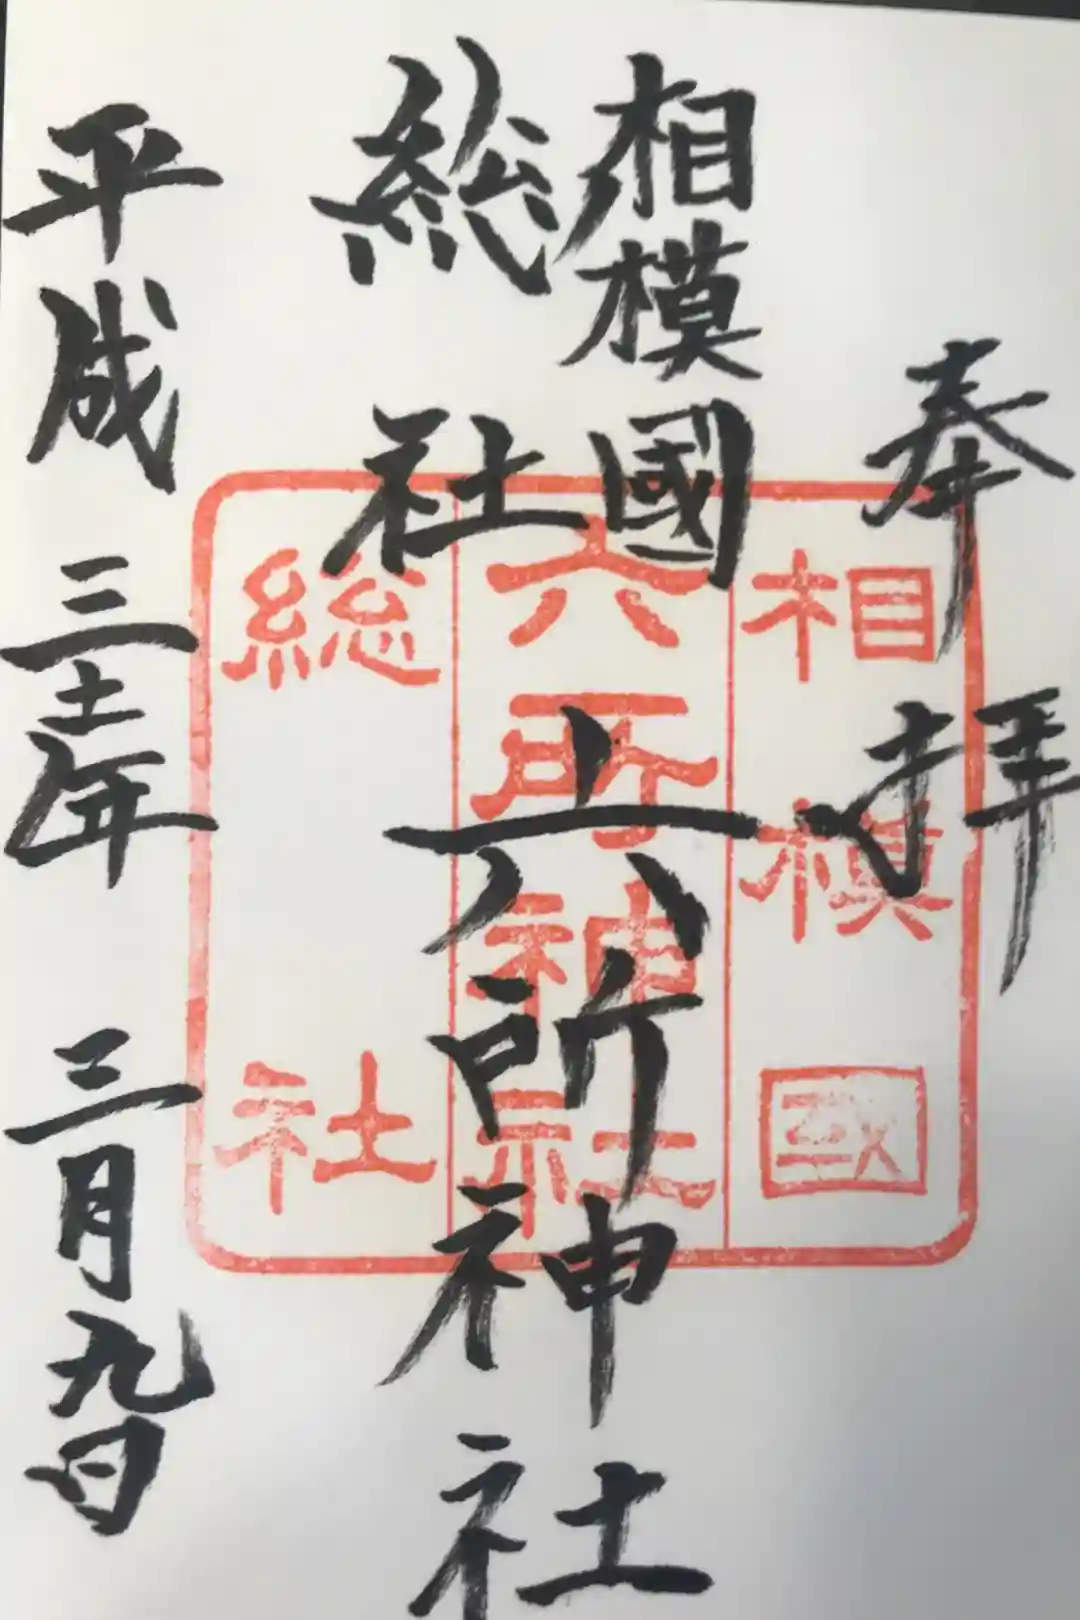 奉拝
相模國
総社
六所神社
平成三十一年三月九日
相模國
六所神社
総社